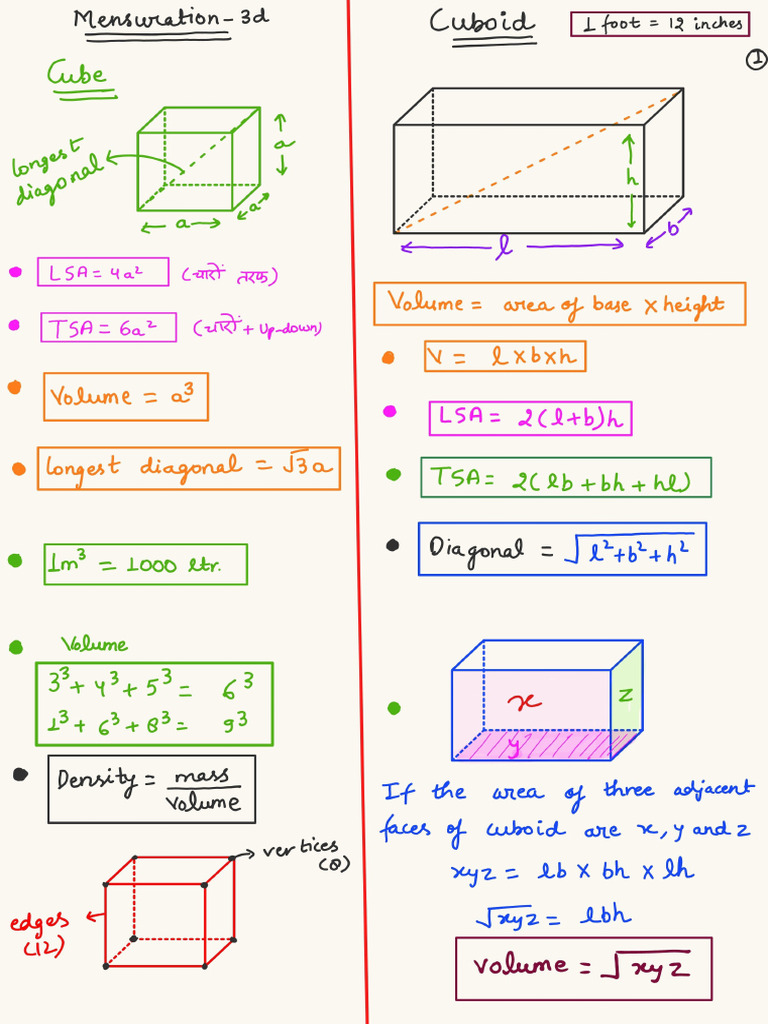 Mensuration - 3d
Cube
longest
diagonal
a
a
a
LSA = 4a²   (चारों तरफ)
TSA = 6a²   (चारों + Up-down)
Volume = a³
longest diagonal = √3a
1m³ = 1000 ltr.
Volume
3³ + 4³ + 5³ = 6³
1³ + 6³ + 8³ = 9³
Density = mass / volume
vertices
(8)
edges
(12)
Cuboid
1 foot = 12 inches
1
h
b
l
Volume = area of base × height
V = l×b×h
LSA = 2(l+b)h
TSA = 2(lb + bh + hl)
Diagonal = √l²+b²+h²
x
z
y
If the area of three adjacent
faces of cuboid are x, y and z
xyz = lb × bh × lh
√xyz = lbh
volume = √xyz